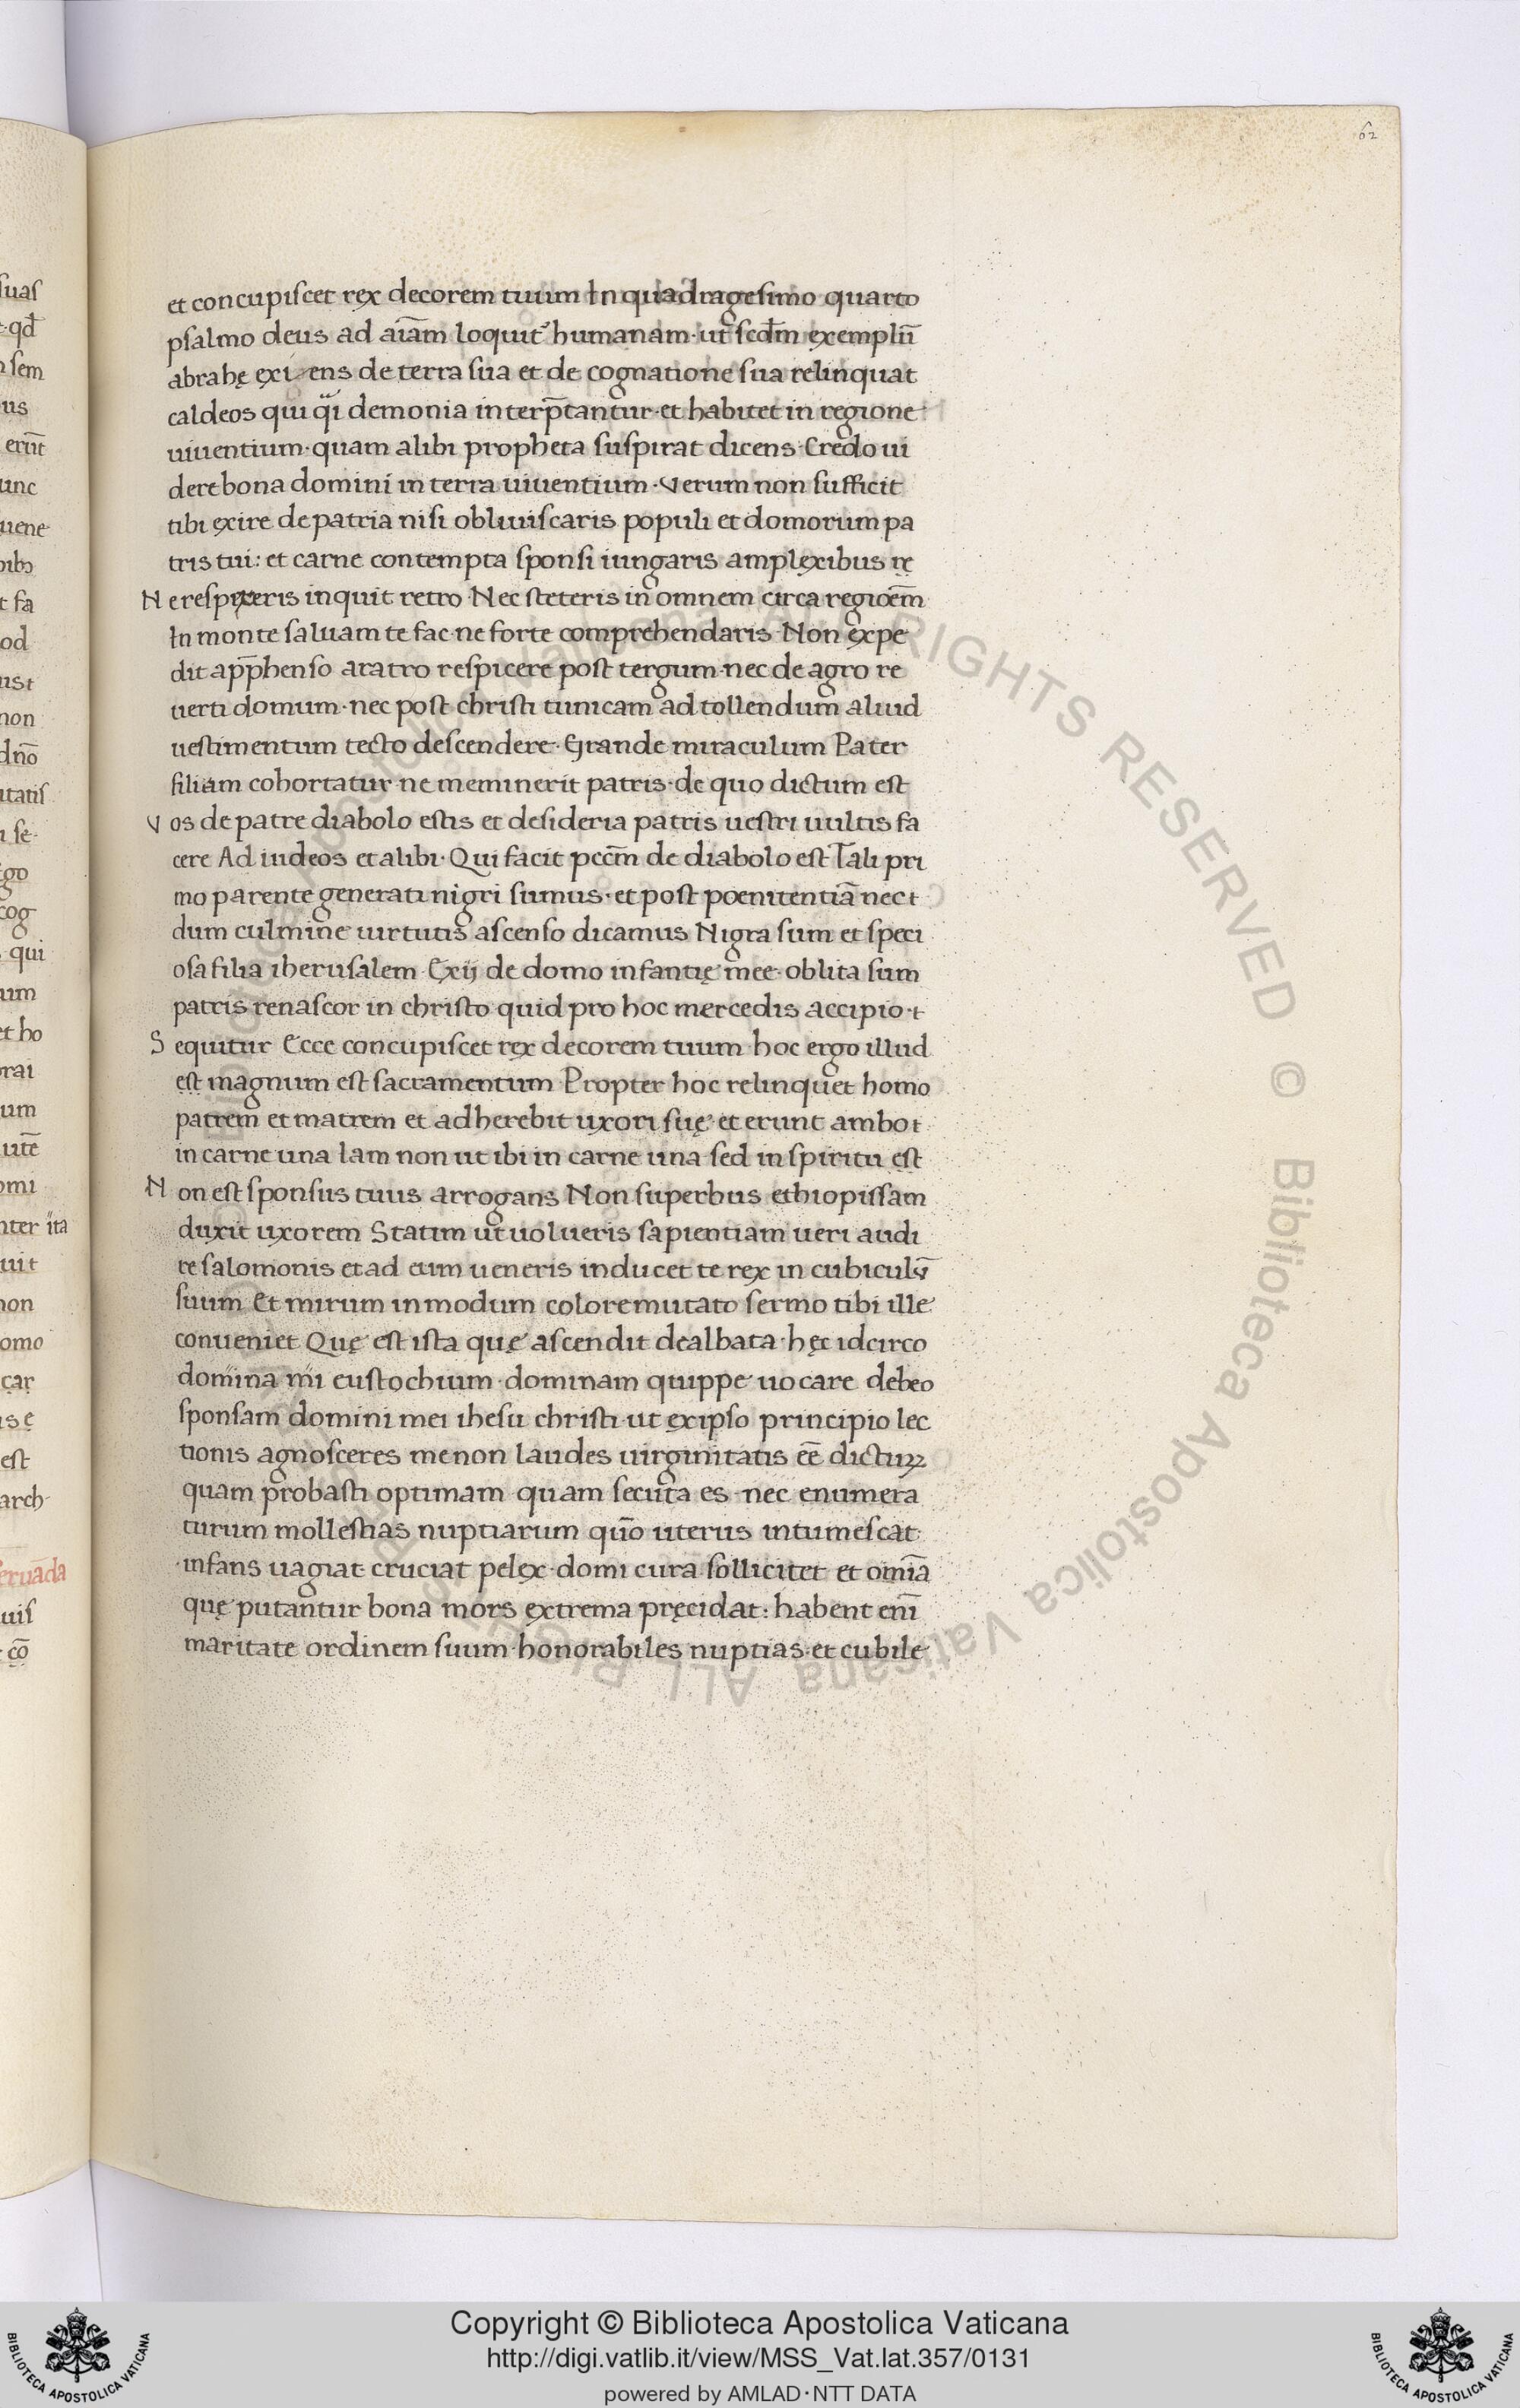 62
et concupiscet rex decorem tuum In quadragesimo quarto
psalmo deus ad aīam loquit᷑ humanam· ut scd̄m exemplū
abrahę exi ens de terra sua et de cognatione sua relinquat
caldeos qui q̈i demonia interp̄tantur· et habitet in regione
uiuentium· quam alibi propheta suspirat dicens· Credo ui
dere bona domini in terra uiuentium· Verum non sufficit
tibi exire de patria nisi obliuiscaris populi et domorum pa
tris tui: et carne contempta sponsi iungaris amplexibus re
Ne respexeris inquit retro Nec steteris in omnem circa regiōem
In monte saluam te fac· ne forte comprehendaris Non expe
dit app̄henso aratro respicere post tergum· nec de agro re
uerti domum· nec post christi tunicam ad tollendum aliud
uestimentum tecto descendere· Grande miraculum Pater
filiam cohortatur ne meminerit patris· de quo dictum est
Vos de patre diabolo estis et desideria patris uestri uultis fa
cere Ad iudeos et alibi· Qui facit pccm̄ de diabolo est Tali pri
mo parente generati nigri sumus· et post poenitentiā nec
dum culmine uirtutis ascenso dicamus Nigra sum et speci
osa filia iherusalem· Exij de domo infantię mee· oblita sum
patris renascor in christo quid pro hoc mercedis accipio·
Sequitur Ecce concupiscet rex decorem tuum hoc ergo illud
est magnum est sacramentum Propter hoc relinquet homo
patrem et matrem et adherebit uxori suę· et erunt ambo
in carne una Iam non ut ibi in carne una sed in spiritu est
Non est sponsus tuus arrogans Non superbus ethiopissam
duxit uxorem Statim ut uolueris sapientiam ueri audi
re salomonis et ad eum ueneris inducet te rex in cubiculū
suum Et mirum in modum colore mutato sermo tibi ille
conueniet Quę est ista quę ascendit dealbata· hęc idcirco
domina mi eustochium· dominam quippe uocare debeo
sponsam domini mei ihesu christi· ut ex ipso principio lec
tionis agnosceres me non laudes uirginitatis eē dicturꝫ
quam probasti optimam quam secuta es· nec enumera
turum mollestias nuptiarum quō uterus intumescat
infans uagiat· cruciat pelex· domi cura sollicitet et omīa
quę putantur bona mors extrema pręcidat: habent enī
maritate ordinem suum· honorabiles nuptias· et cubile
Copyright © Biblioteca Apostolica Vaticana
http://digi.vatlib.it/view/MSS_Vat.lat.357/0131
powered by AMLAD·NTT DATA